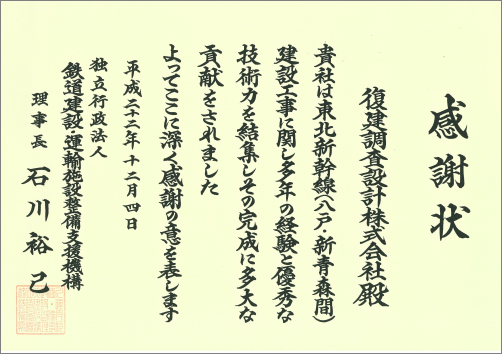 感謝状
復建調査設計株式会社殿
貴社は東北新幹線(八戸・新青森間)
建設工事に関し多年の経験と優秀な
技術力を結集しその完成に多大な
貢献をされました
よってここに深く感謝の意を表します
平成二十二年十二月四日
独立行政法人
鉄道建設・運輸施設整備支援機構
理事長 石川裕己